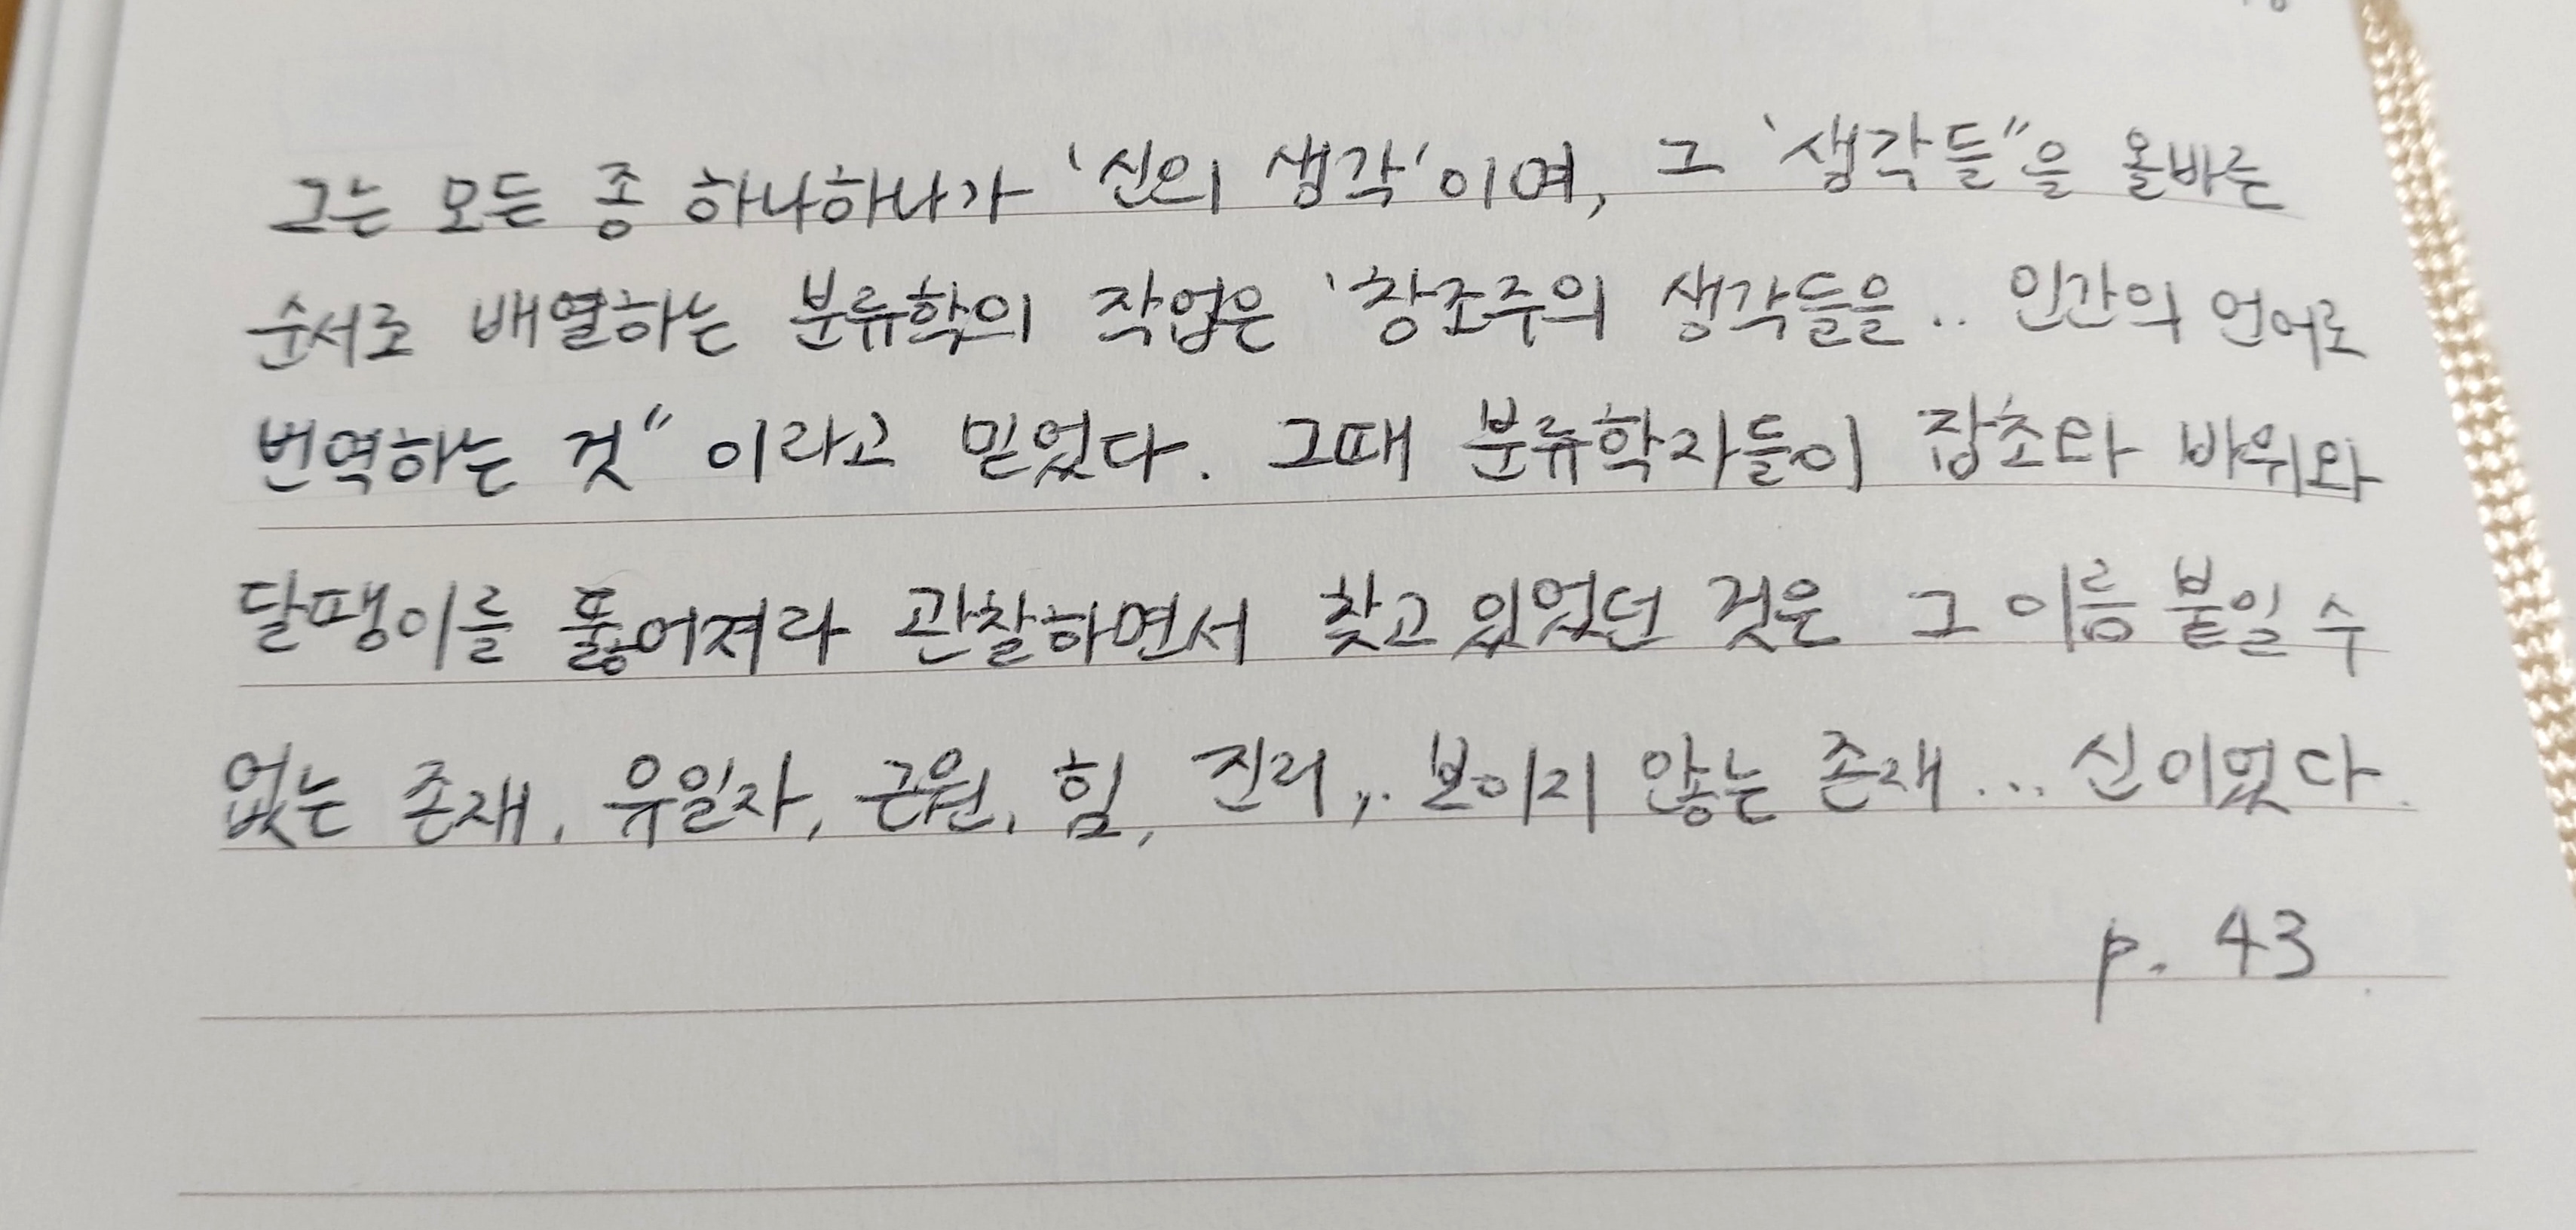 그는 모든 종 하나하나가 '신의 생각'이며, 그 '생각들"을 올바른
순서로 배열하는 분류학의 작업은 '창조주의 생각들을.. 인간의 언어로
번역하는 것" 이라고 믿었다. 그때 분류학자들이 잡초와 바위와
달팽이를 뚫어져라 관찰하면서 찾고 있었던 것은 그 이름 붙일 수
없는 존재, 유일자, 근원, 힘, 진리,. 보이지 않는 존재... 신이었다.
p. 43